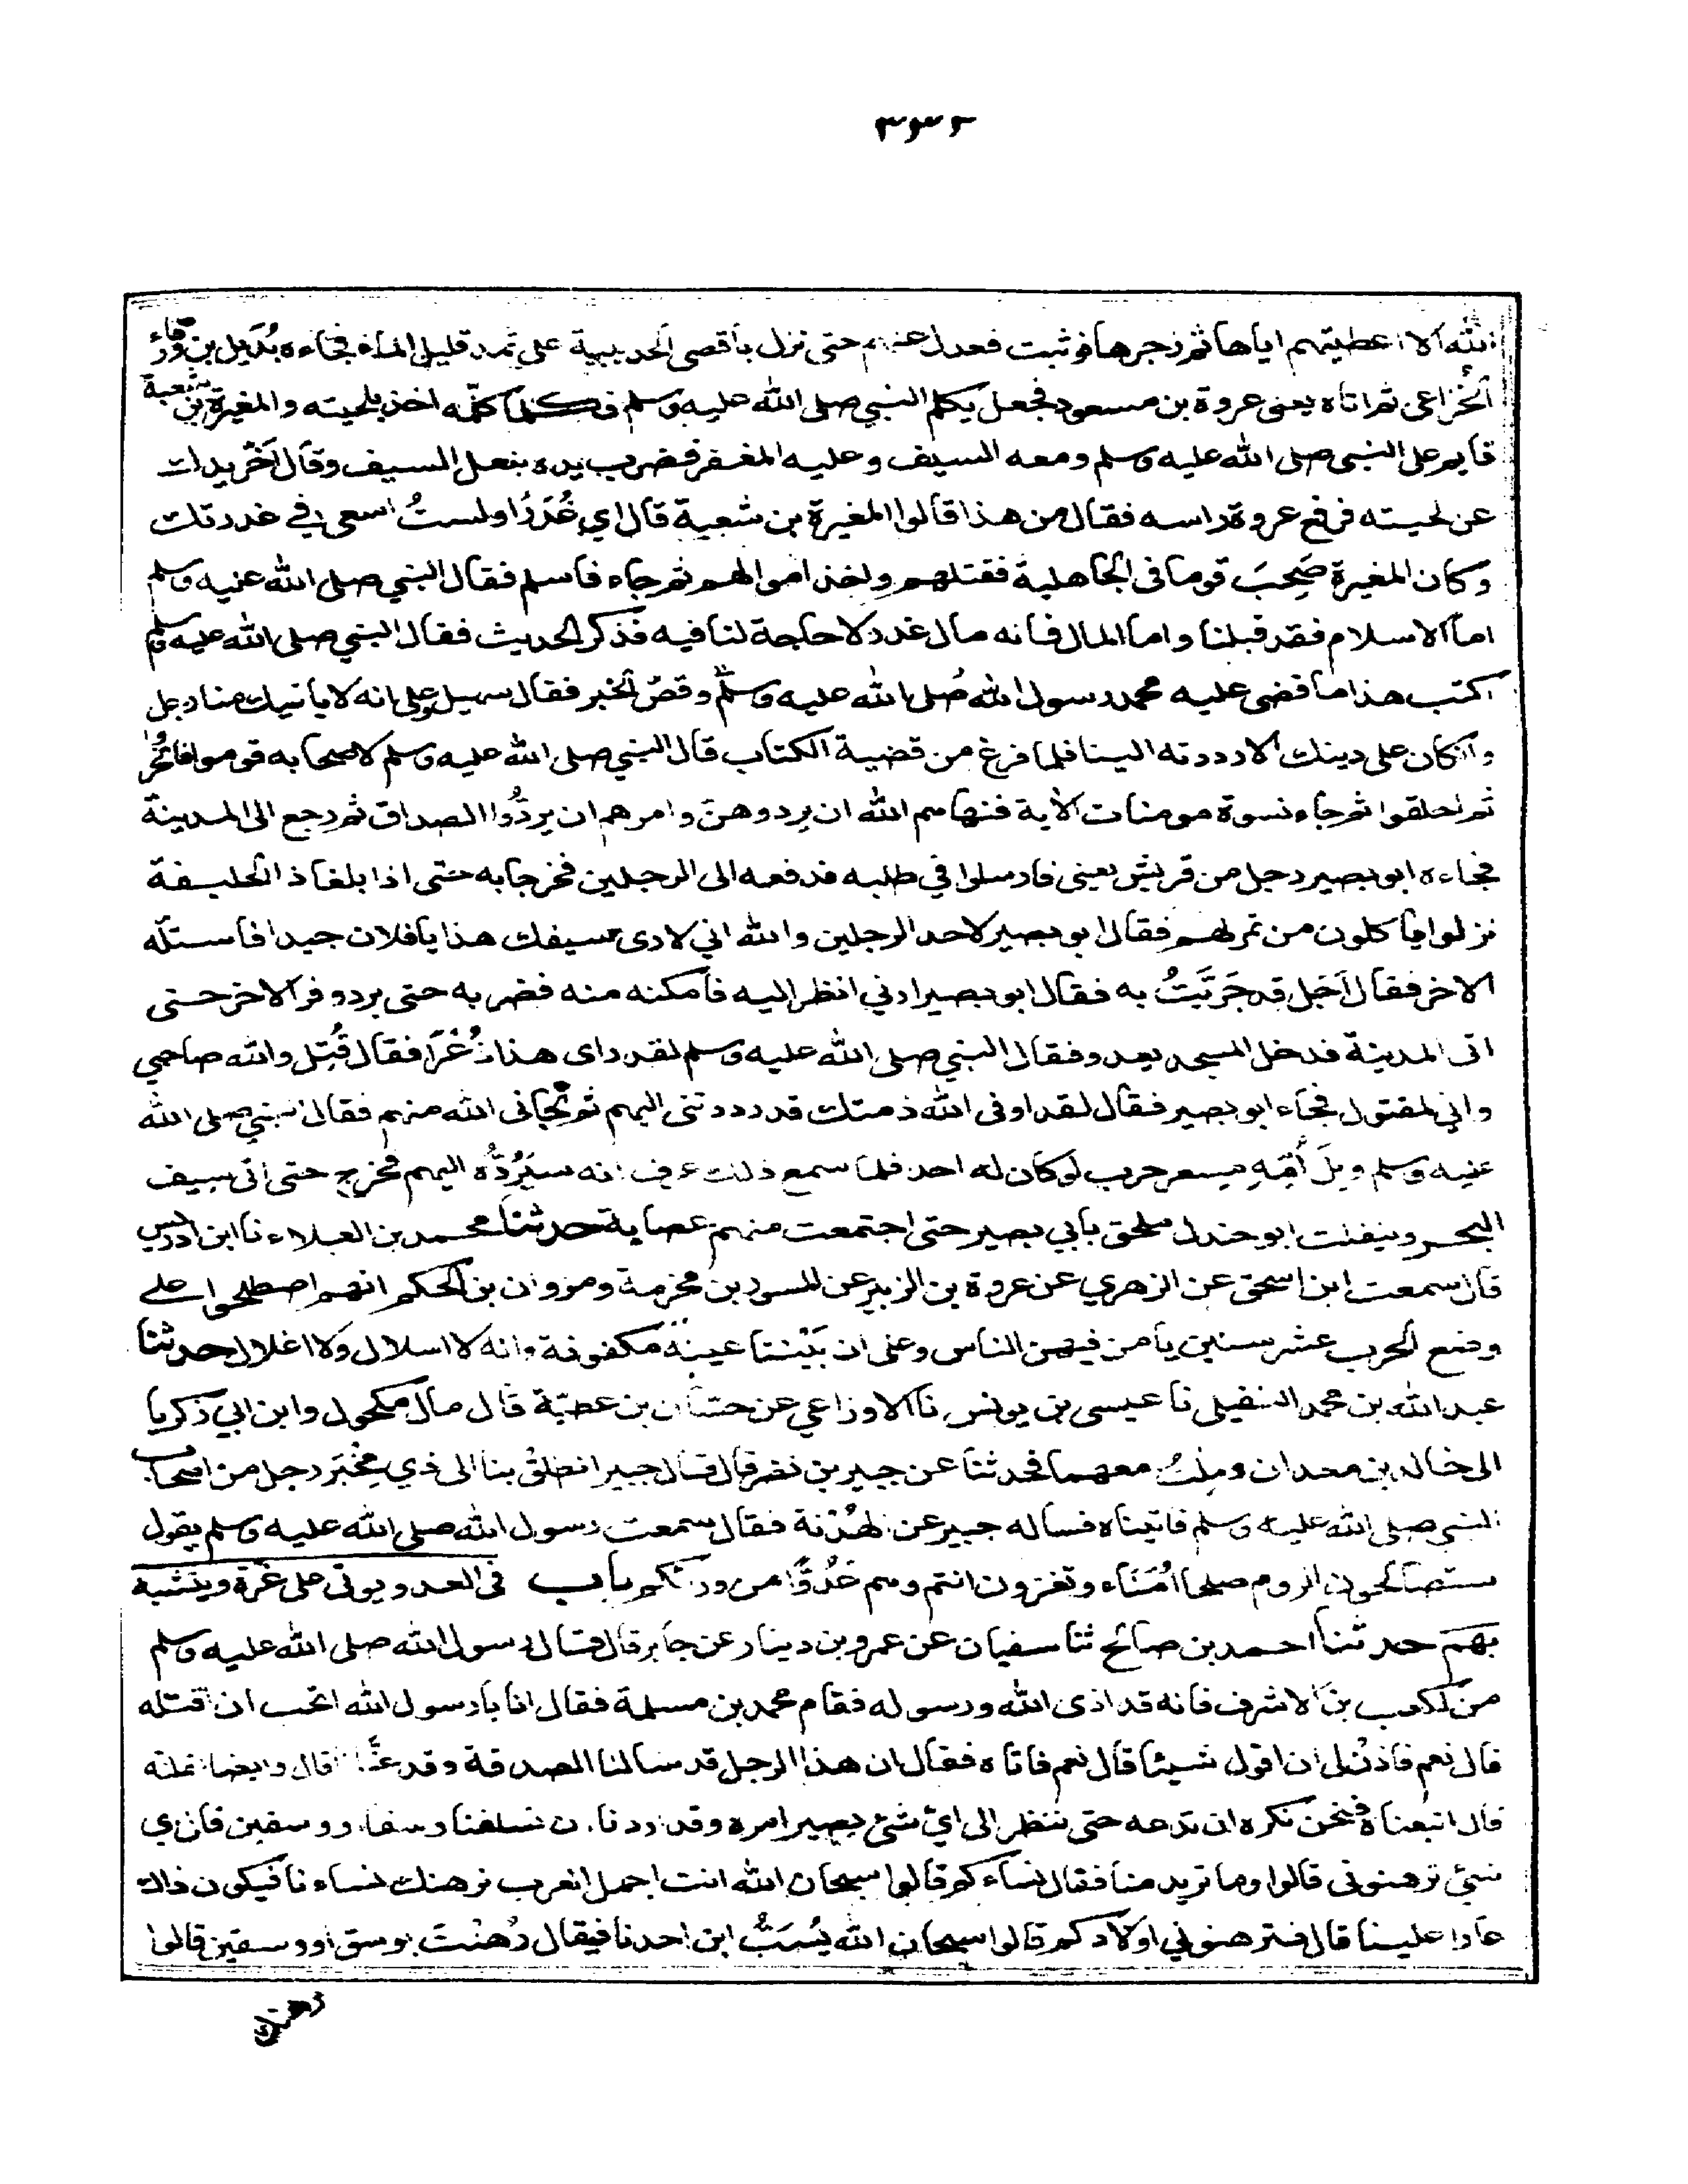 الله الا اعطيتهم اياها ثم زجرها فوثبت فعدل عنهم حتى نزل باقصى الحديبية على ثمد قليل الماء فجاءه بُدَيل بن ورقاء
الخُزاعى ثم اتاه يعنى عروة بن مسعود فجعل يكلم النبي صلى الله عليه وسلم فكلما كلّمه اخذ بلحيته والمغيرة بن شعبة
قايم على النبي صلى الله عليه وسلم ومعه السيف وعليه المغفر فضرب يده بنعل السيف وقال اَخّر يدك
عن لحيته فرفع عروة راسه فقال من هذا قالوا المغيرة بن شعبة قال اي غُدَرُ اولستُ اسعى في غدرتك
وكان المغيرة صَحِبَ قوما في الجاهلية فقتلهم واخذ اموالهم ثم جاء فاسلم فقال النبي صلى الله عليه وسلم
اما الاسلام فقد قبلنا واما المال فانه مال غدر لا حاجة لنا فيه فذكر الحديث فقال النبي صلى الله عليه وسلم
اكتب هذا ما قضى عليه محمد رسول الله صلى الله عليه وسلم وقصّ الخبر فقال سهيل وعلى انه لا ياتيك منا رجل
وان كان على دينك الا رددته الينا فلما فرغ من قضية الكتاب قال النبي صلى الله عليه وسلم لاصحابه قوموا فانحُروا
ثم احلقوا ثم جاء نسوة مومنات الآية فنهاهم الله ان يردوهن وامرهم ان يردُّوا الصداق ثم رجع الى المدينة
فجاءه ابو بصير رجل من قريش يعنى فارسلوا في طلبه فدفعه الى الرجلين فخرجا به حتى اذا بلغا ذا الحليفة
نزلوا ياكلون من تمر لهم فقال ابو بصير لاحد الرجلين والله اني لارى سيفك هذا يا فلان جيدا فاستلّه
الاخر فقال اَجَل قد جَرَّبتُ به فقال ابو بصير ارني انظر اليه فامكنه منه فضربه حتى برد وفر الاخر حتى
اتى المدينة فدخل المسجد يعدو فقال النبي صلى الله عليه وسلم لقد راى هذا ذُعْرًا فقال قُتِل والله صاحبي
واني لمقتول فجاء ابو بصير فقال لقد اوفى الله ذمتك قد رددتنى اليهم ثم نجّانى الله منهم فقال النبي صلى الله
عليه وسلم ويلَ اُمِّهِ مِسعر حرب لو كان له احد فلما سمع ذلك عرف انه سيَرُدُّه اليهم فخرج حتى اتى سيف
البحر وينفلت ابو جندل فلحق بابي بصير حتى اجتمعت منهم عصابة حدثنا محمد بن العلاء نا ابن ادريس
قال سمعت ابن اسحق عن الزهري عن عروة بن الزبير عن المسور بن مخرمة ومروان بن الحكم انهم اصطلحوا على
وضع الحرب عشر سنين يامن فيهن الناس وعلى ان بَيْننا عيبة مكفوفة وانه لا اسلال ولا اغلال حدثنا
عبد الله بن محمد النفيلي نا عيسى بن يونس نا الاوزاعي عن حسّان بن عطيّة قال مال مكحول وابن ابي زكريا
الى خالد بن معدان ومِلتُ معهما فحدثنا عن جبير بن نفير قال قال جبير انطلقْ بنا الى ذي مِخْبَر رجل من اصحاب
النبي صلى الله عليه وسلم فاتيناه فساله جبير عن الهُدْنة فقال سمعت رسول الله صلى الله عليه وسلم يقول
ستصالحون الروم صلحا اٰمُنَاء وتغزون انتم وهم عَدُوًّا من ورائكم باب في العدو يوتى على غرة ويتشبه
بهم حدثنا احمد بن صالح ثنا سفيان عن عمرو بن دينار عن جابر قال قال رسول الله صلى الله عليه وسلم
من لكعب بن الاشرف فانه قد اذى الله ورسوله فقام محمد بن مسلمة فقال انا يا رسول الله اتحب ان اقتله
قال نعم فاذنْ لى ان اقول شيئا قال نعم فاتاه فقال ان هذا الرجل قد سالنا الصدقة وقد عنَّانا قال وايضا لتملنه
قال اتبعناه فنحن نكره ان ندعه حتى ننظر الى ايّ شئ يصير امره وقد اردنا ان تسلفنا وسقا او وسقين قال اي
شئ ترهنونى قالوا وما تريد منا فقال نساءكم قالوا سبحان الله انت اجمل العرب نرهنك نساءنا فيكون ذلك
عارا علينا قال فترهنوني اولادكم قالوا سبحان الله يُسَبُّ ابن احدنا فيقال رُهِنْتَ بوسق او وسقين قالوا
نرهنك